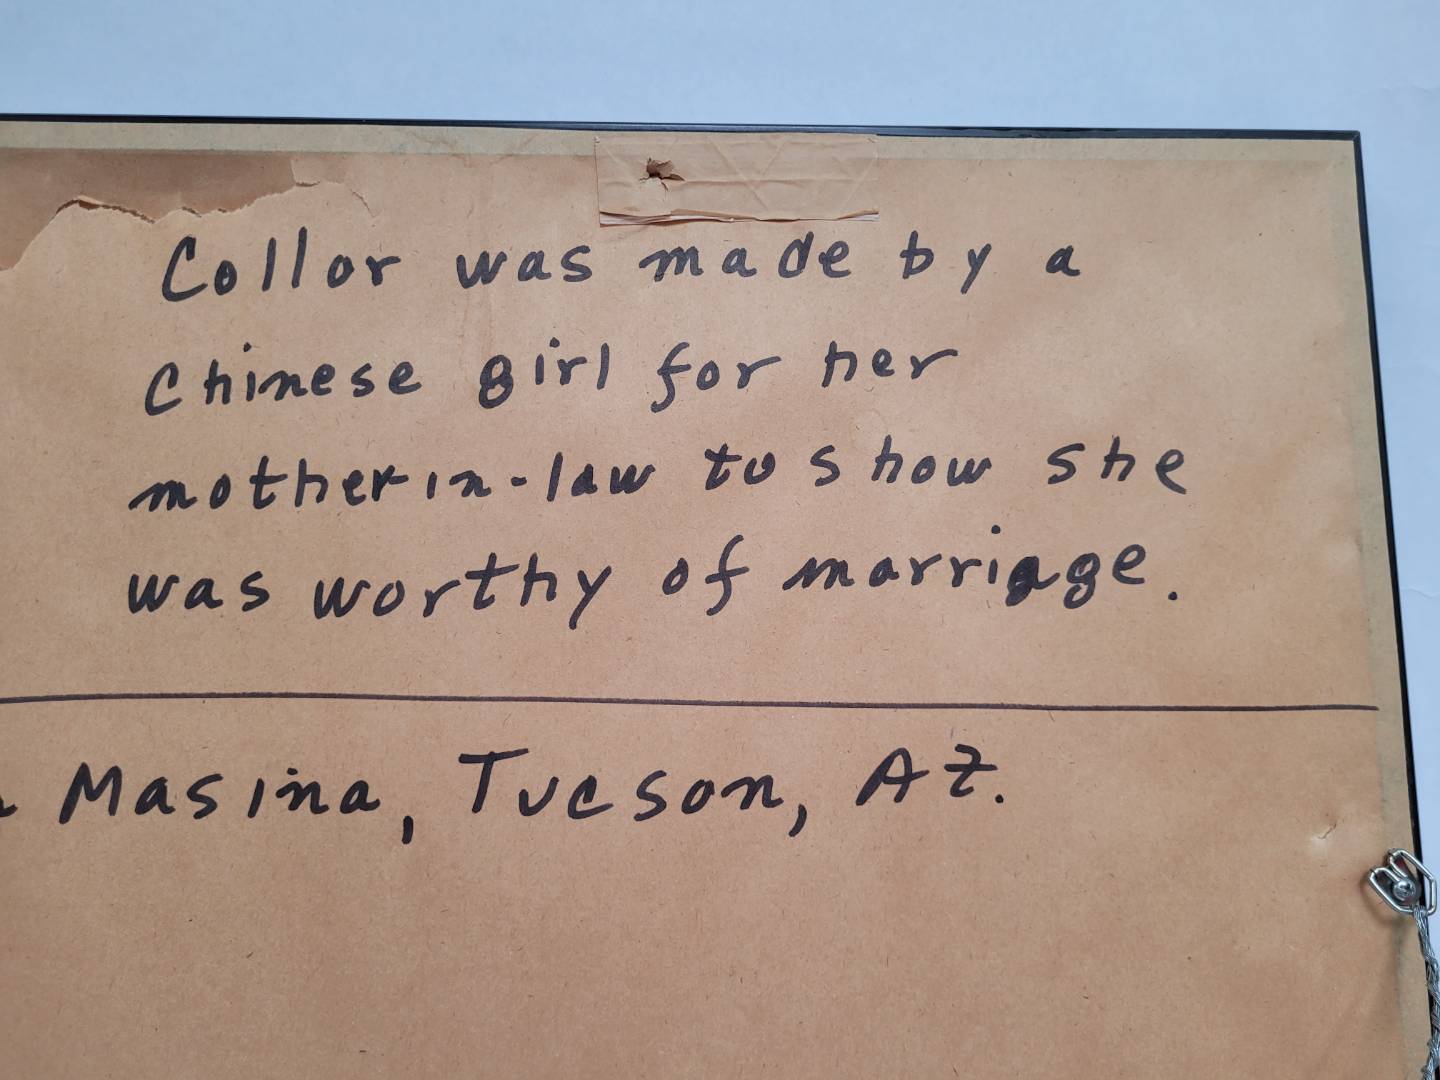 Collor was made by a
Chinese girl for her
mother in-law to show she
was worthy of marriage.
Masina, Tucson, AZ.